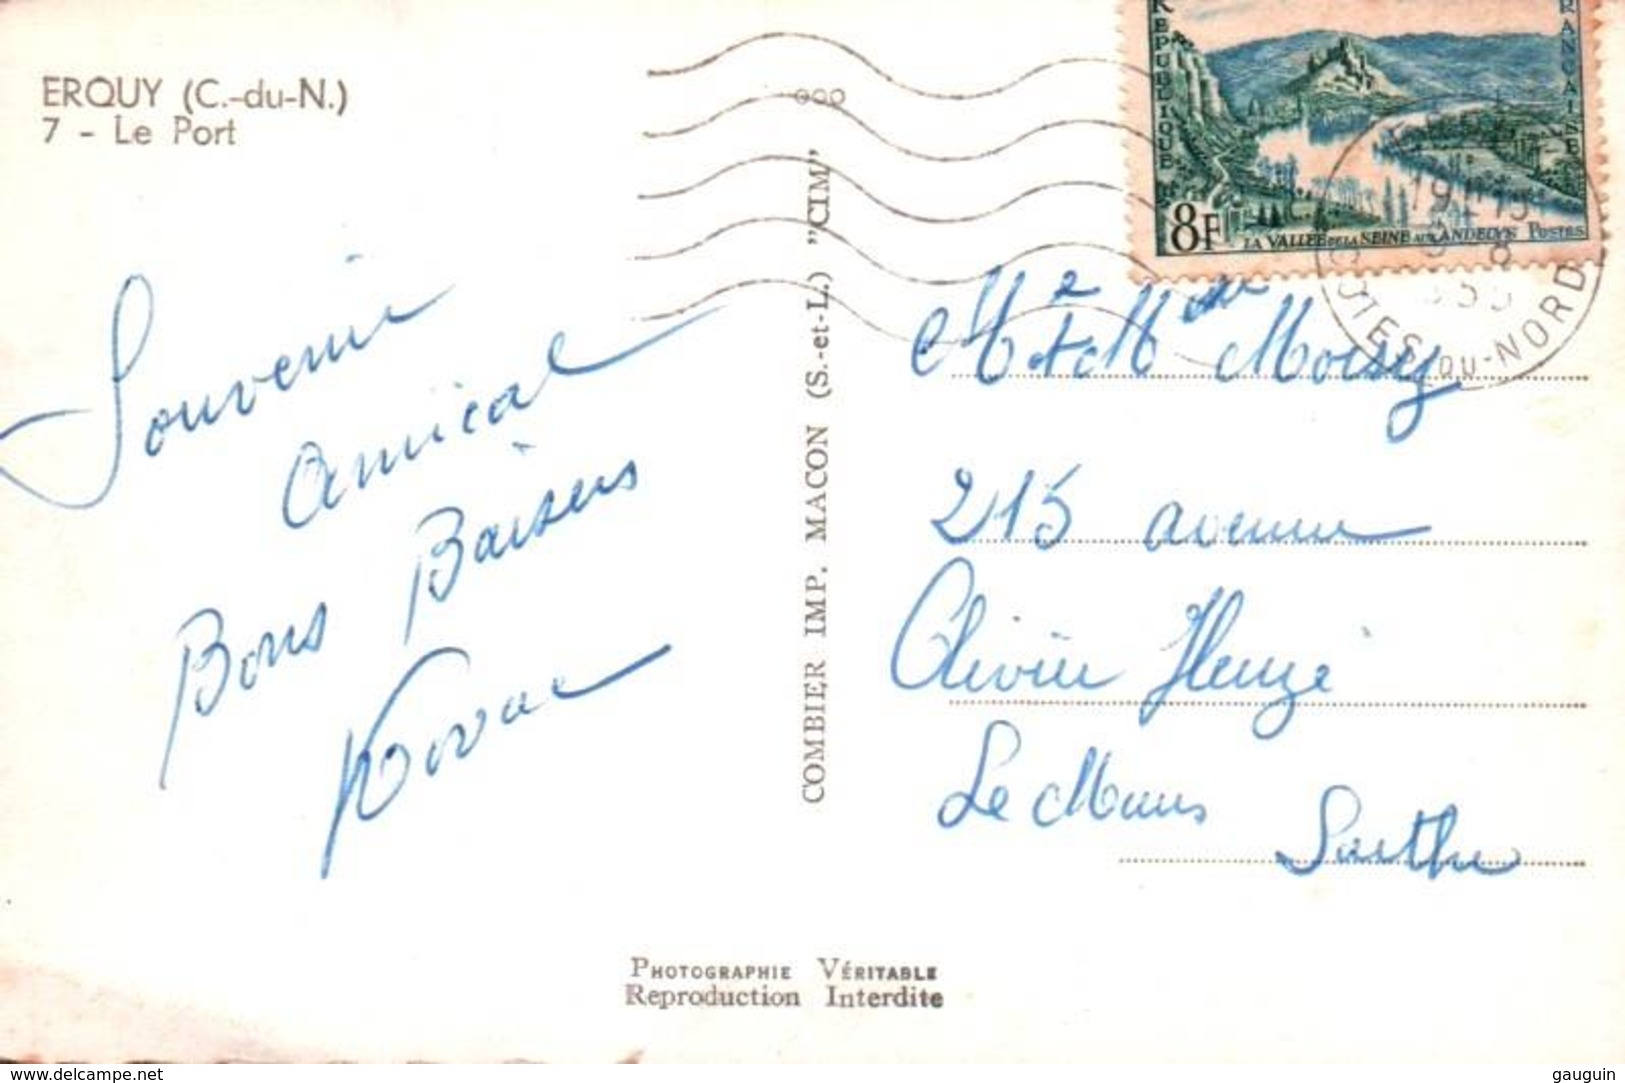 ERQUY (C.-du-N.)
7 - Le Port
Souvenir
Amical
Bons Baisers
COMBIER IMP. MACON (S.-et-L.) "CIM"
REPUBLIQUE
FRANÇAISE
8F
LA VALLEE DE LA SEINE AUX ANDELYS POSTES
19H15
8
COTES-DU-NORD
M et M Moisy
215 avenue
Olivier Heuzé
Le Mans
Sarthe
PHOTOGRAPHIE VÉRITABLE
Reproduction Interdite
www.delcampe.net
gauguin